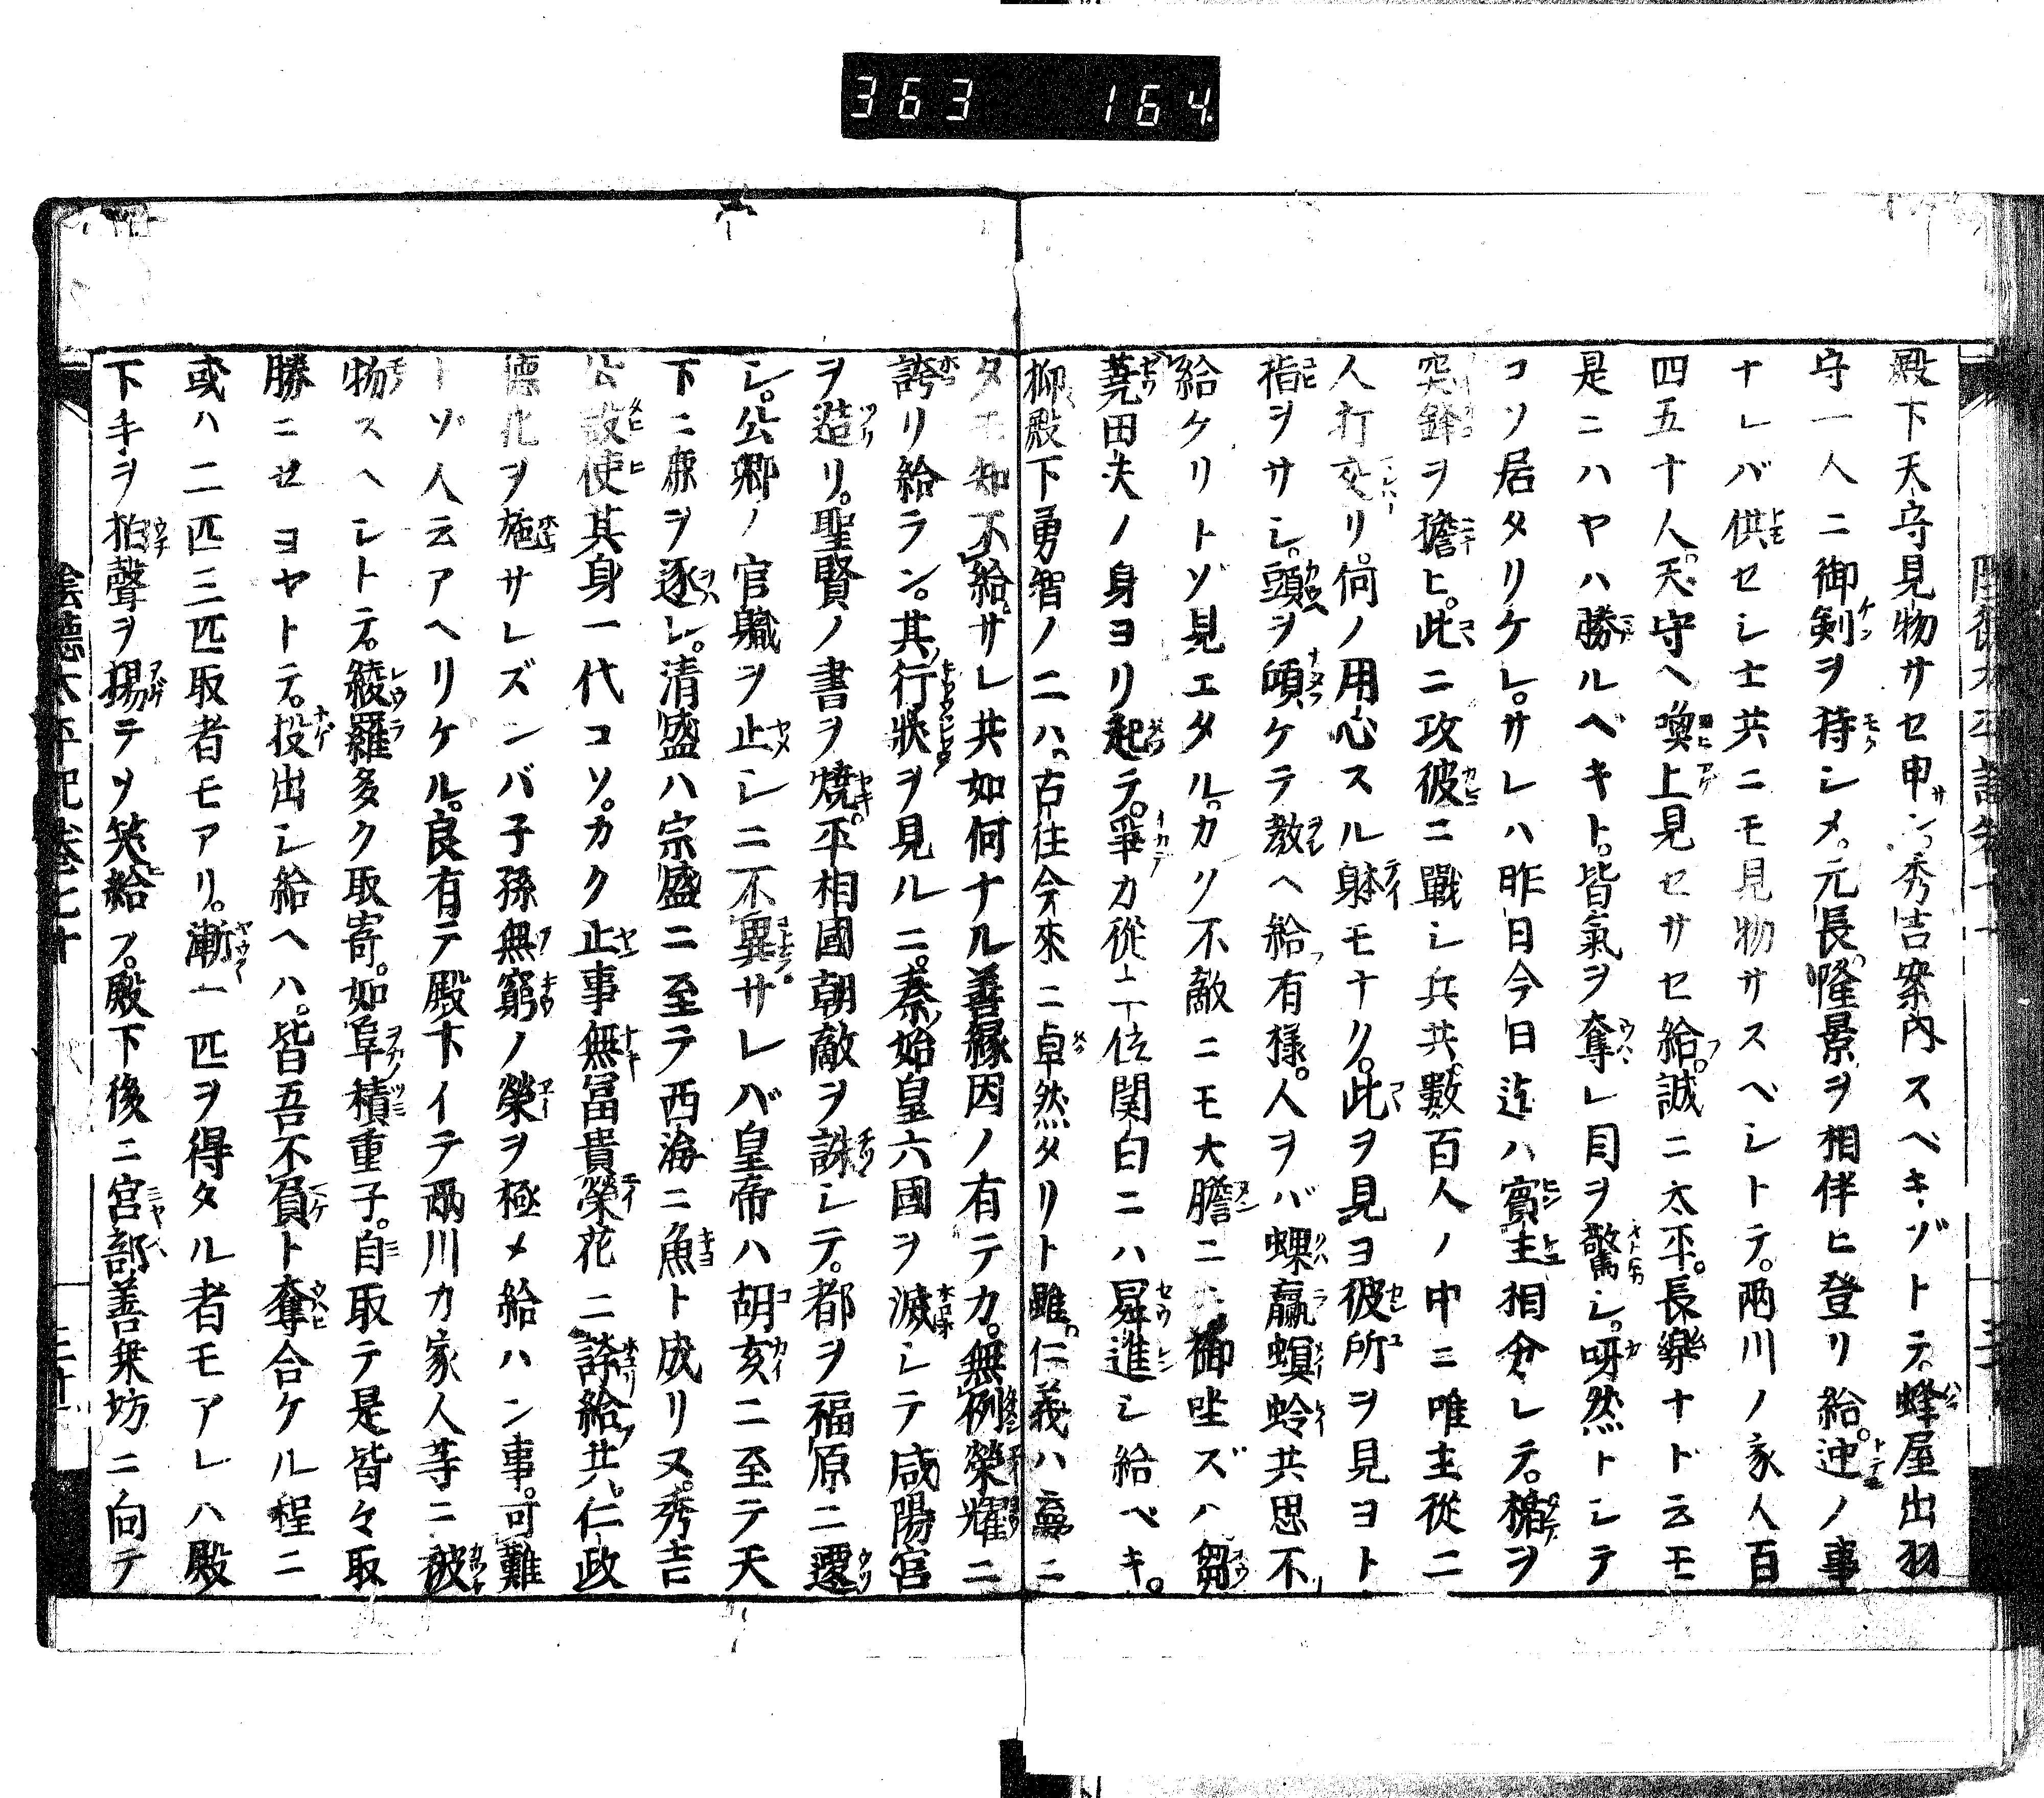 363 164
殿下天守見物サセ申サン。秀吉案内スベキゾトテ。蜂屋出羽
守一人ニ御剣ヲ持シメ。元長隆景ヲ相伴ヒ登リ給。迚ノ事
ナレバ供セシ士共ニモ見物サスベシトテ。両川ノ家人百
四五十人。天守ヘ喚上見セサセ給フ。誠ニ太平。長樂ナド云モ
是ニハヤハ勝ルヘキト。皆氣ヲ奪レ目ヲ驚シ。呀然トシテ
コソ居タリケレ。サレハ昨日今日迄ハ賓主相分レテ。楯ヲ
突鋒ヲ擔ヒ。此ニ攻彼ニ戰シ兵共。數百人ノ中ニ唯主從二
人打交リ。何ノ用心スル躰モナク。此ヲ見ヨ彼所ヲ見ヨト
指ヲサシ。頭ヲ傾ケテ教ヘ給フ有樣。人ヲバ蜾蠃螟蛉共思不
給ケリトゾ見エタル。カク不敵ニモ大膽ニ御坐ズハ芻
蕘田夫ノ身ヨリ起テ。爭カ從一位関白ニハ昇進シ給ベキ。
抑殿下勇智ノ二ハ。古往今來ニ卓然タリト雖。仁義ハ夢ニ
タモ知不給。サレ共如何ナル善縁因ノ有テカ。無例榮耀ニ
誇リ給ラン。其行状ヲ見ルニ。秦始皇六國ヲ滅シテ咸陽宮
ヲ造リ。聖賢ノ書ヲ燒。平相國朝敵ヲ誅シテ。都ヲ福原ニ遷
シ。公卿ノ官職ヲ止シニ不異。サレバ皇帝ハ胡亥ニ至テ天
下ニ鹿ヲ逐レ。清盛ハ宗盛ニ至テ西海ニ魚ト成リヌ。秀吉
公設使其身一代コソ。カク止事無冨貴榮花ニ誇給共。仁政
德化ヲ施サレズンバ子孫無窮ノ榮ヲ極メ給ハン事。可難
トソ人云アヘリケル。良有テ殿下イテ兩川カ家人等ニ被
物スヘシトテ。綾羅多ク取寄。如阜積重子。自取テ是皆々取
勝ニセヨヤトテ。投出シ給ヘハ。皆吾不負ト奪合ケル程ニ
或ハ二匹三匹取者モアリ。漸一匹ヲ得タル者モアレハ殿
下手ヲ拍聲ヲ揚テソ笑給フ。殿下後ニ宮部善乗坊ニ向テ
陰德太平記卷七十